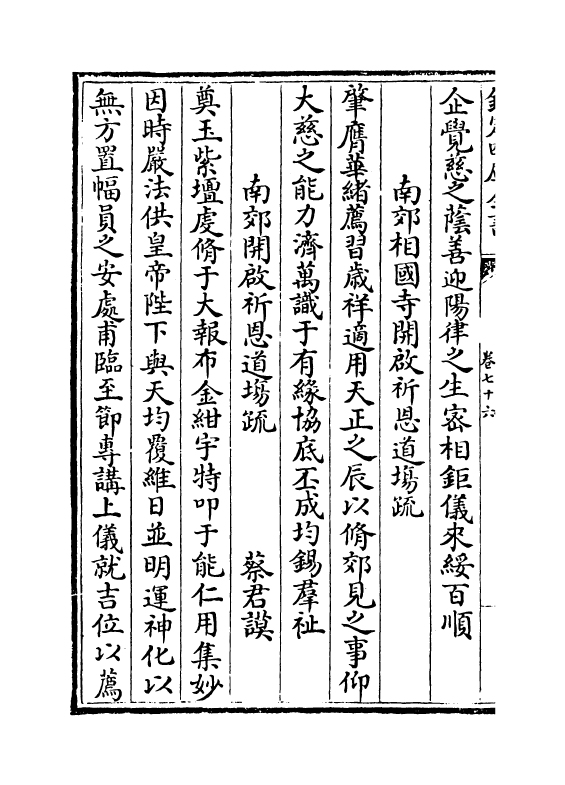 卷七十六
企覺慈之蔭善迎陽律之生宻相鉅儀來綏百順
南郊相國寺開啟祈恩道塲疏
肇膺華緒薦習歳祥適用天正之辰以脩郊見之事仰
大慈之能力濟萬識于有緣協底丕成均錫羣祉
南郊開啟祈恩道塲疏 蔡君謨
奠玉紫壇䖍脩于大報布金紺宇特叩于能仁用集妙
因時嚴法供皇帝陛下與天均覆維日並明運神化以
無方置幅員之安處甫臨至節專講上儀就吉位以薦